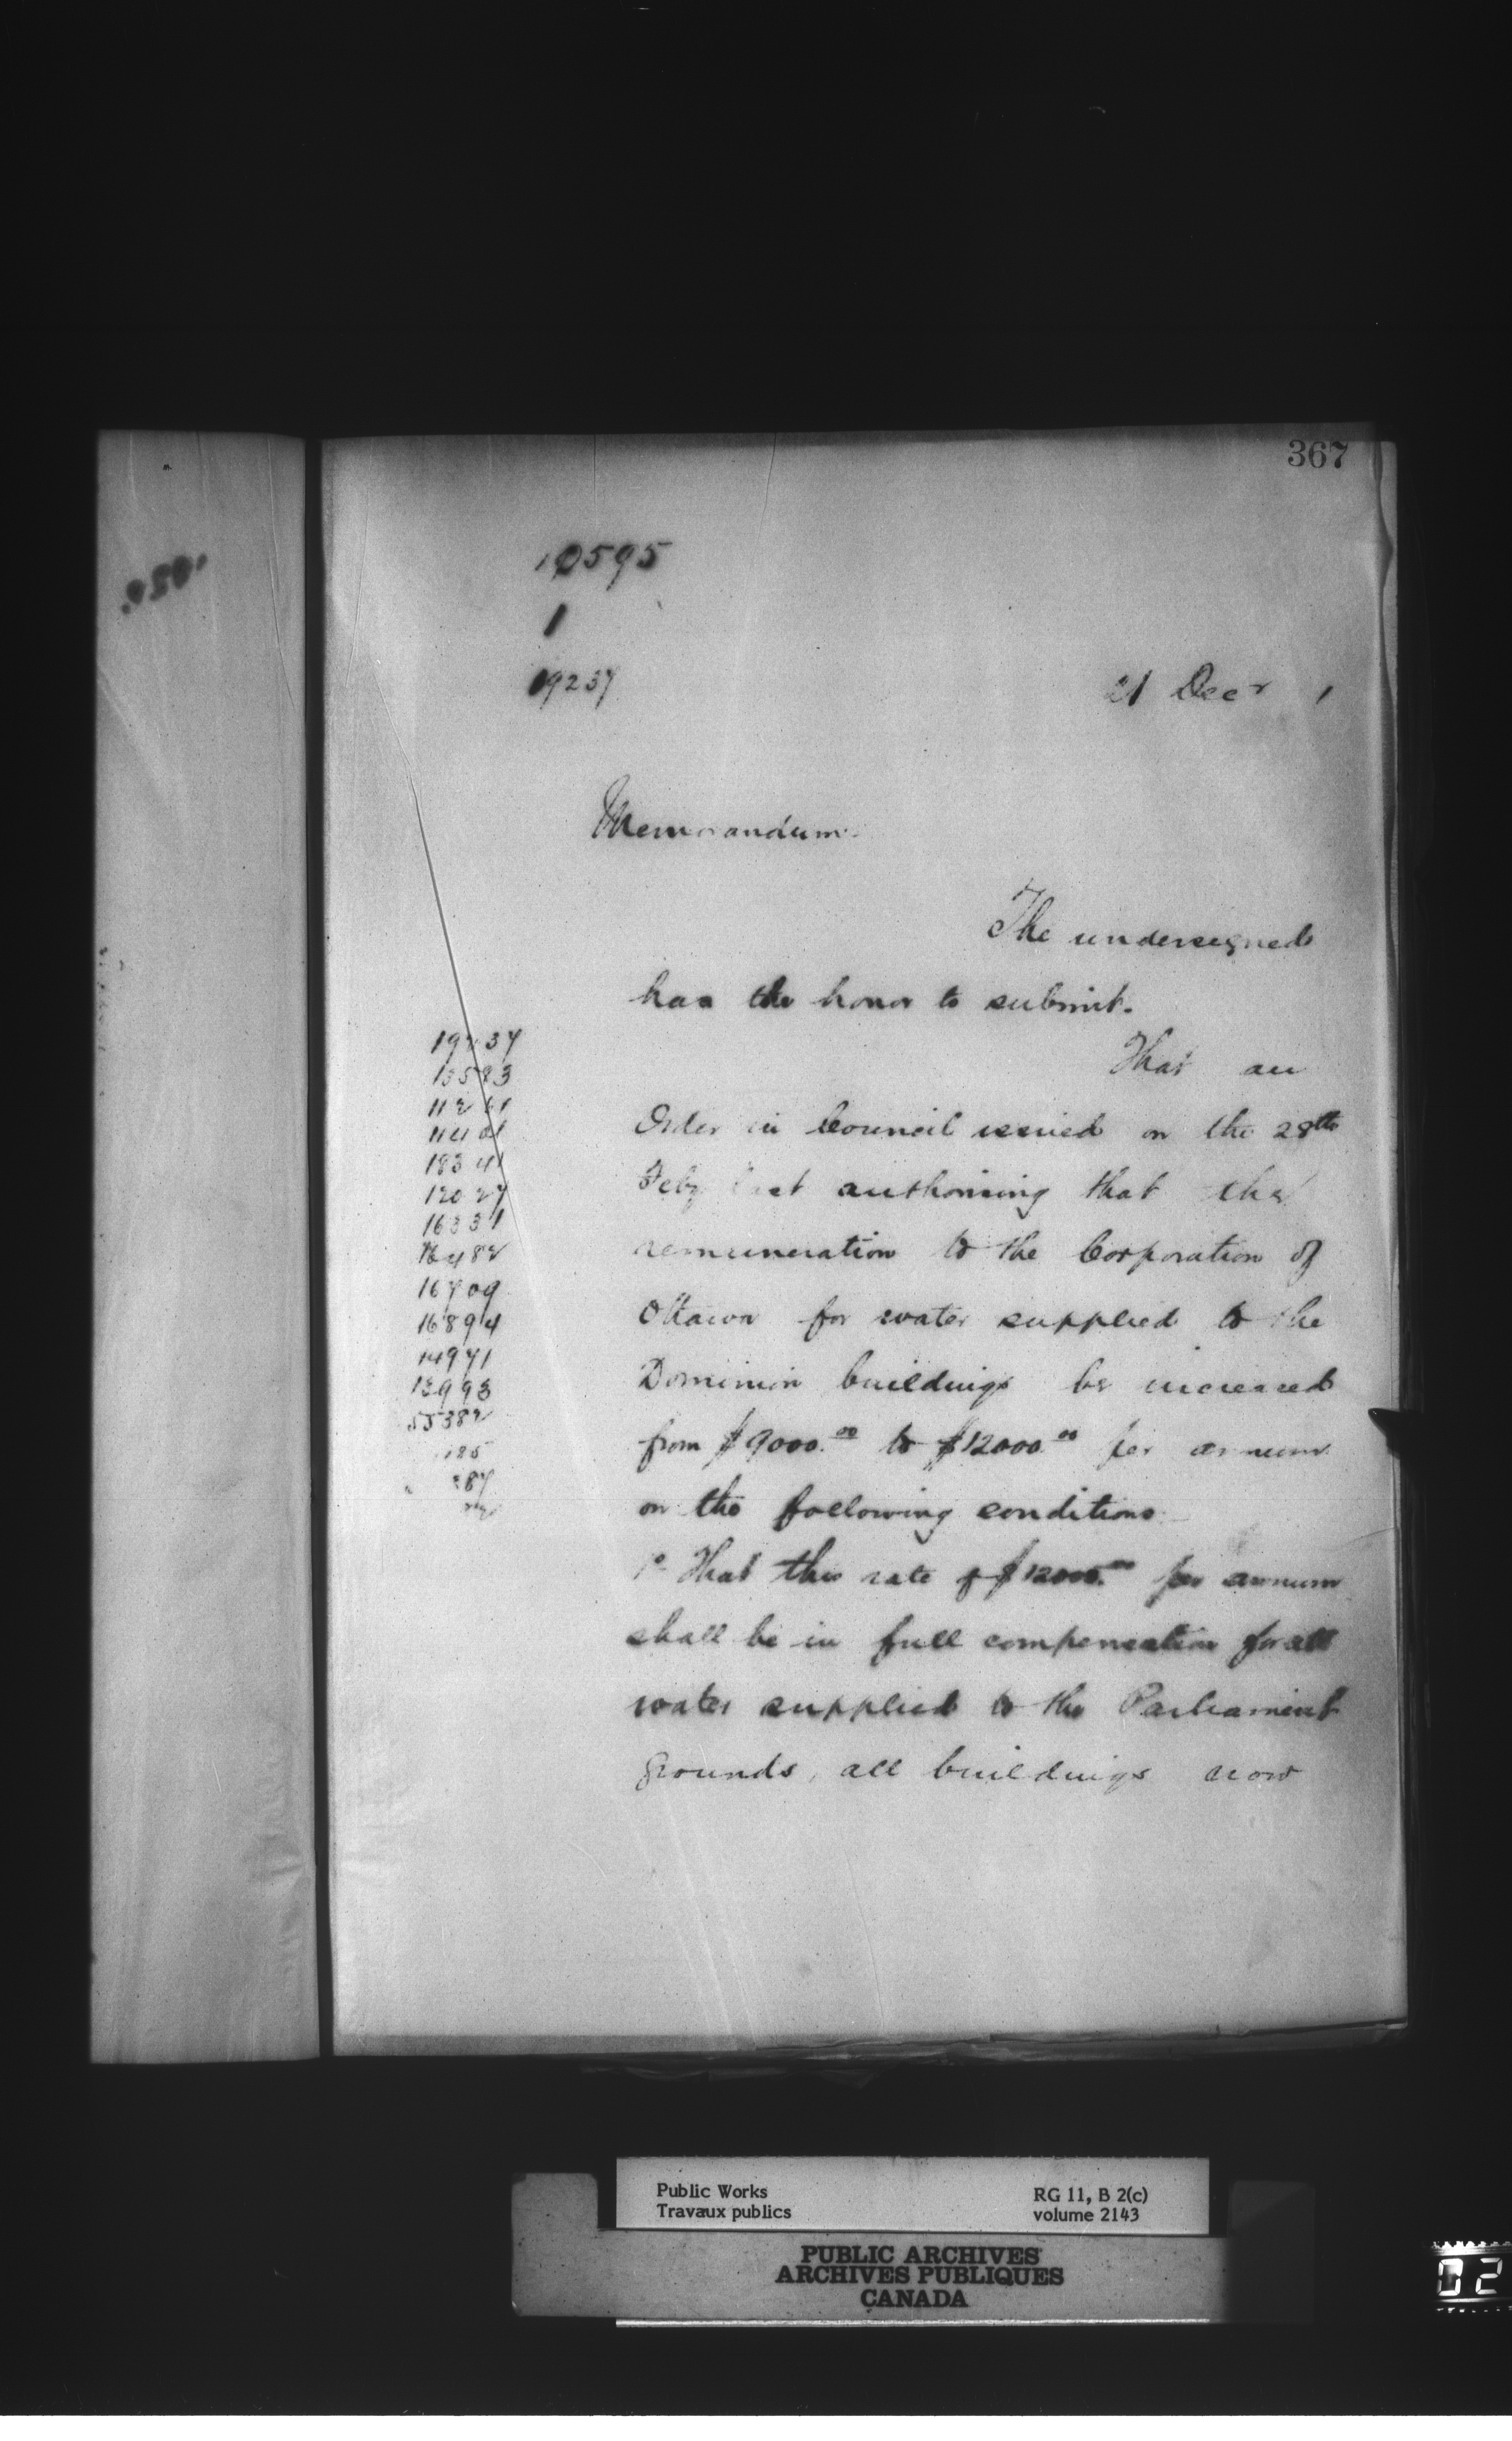 367
10595
1
19237
21 Decr
Memorandum.
The undersigned
has the honor to submit.
That an
Order in Council issued on the 28th
Feby last authorising that the
remuneration to the Corporation of
Ottawa for water supplied to the
Dominion buildings be increased
from $9000.00 to $12000.00 per annum
on the following conditions
1o That this rate of $12000.00 per annum
shall be in full compensation for all
water supplied to the Parliament
Grounds, all buildings now
19237
13583
11261
11401
18341
12027
16331
16482
16709
16894
14971
13993
55382
Public Works
Travaux publics
RG 11, B 2(c)
volume 2143
PUBLIC ARCHIVES
ARCHIVES PUBLIQUES
CANADA
02